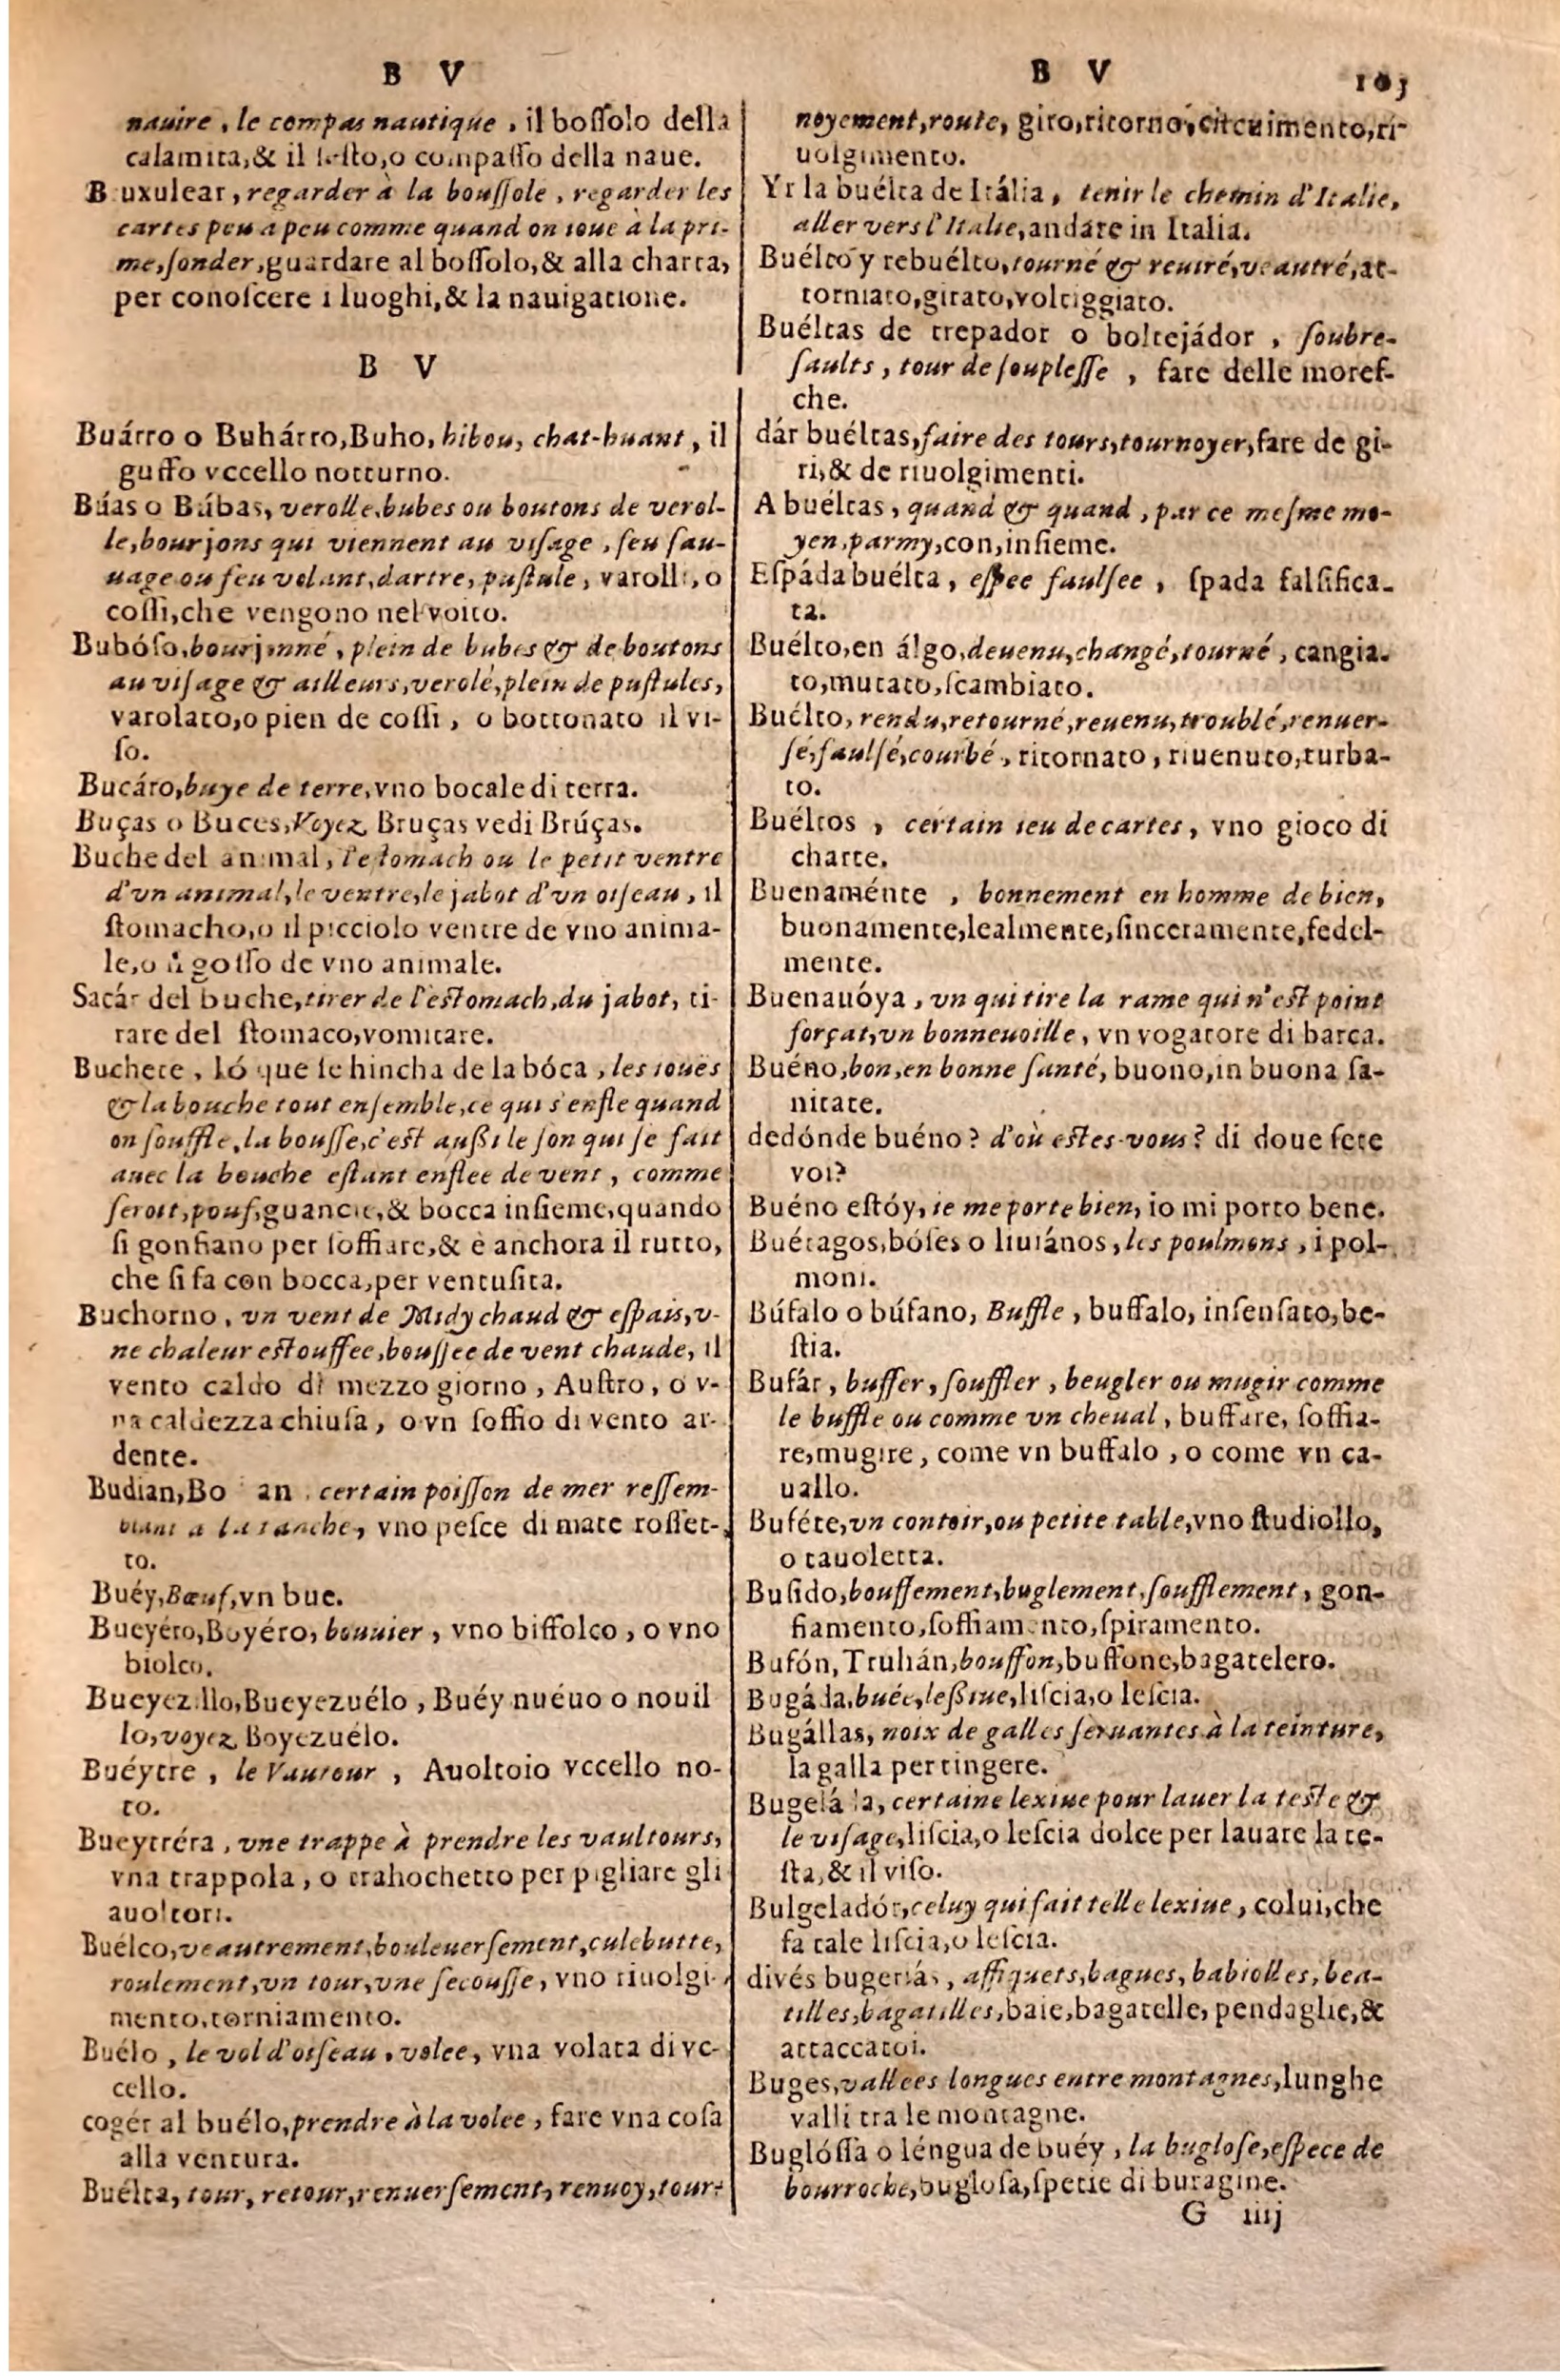 B V
nauire, le compas nautique, il boſſolo della
calamita,& il ſeſto,o compaſſo della naue.
Buxulear, regarder à la bouſſole, regarder les
cartes peu a peu comme quand on ioue à la pri-
me,ſonder,guardare al boſſolo,& alla charta,
per conoſcere i luoghi,& la nauigatione.
B V
Buárro o Buhárro,Buho, hibou, chat-huant, il
guffo vccello notturno.
Búas o Búbas, verolle,bubes ou boutons de verol-
le,bourjons qui viennent au viſage, feu ſau-
uage ou feu volant,dartre, puſtule, varolle, o
coſſi,che vengono nel volto.
Bubóſo,bourjonné, plein de bubes & de boutons
au viſage & ailleurs,verolé,plein de puſtules,
varolato,o pien de coſſi, o bottonato il vi-
ſo.
Bucáro,buye de terre,vno bocale di terra.
Buças o Buces,Voyez Bruças vedi Brúças.
Buche del animal, l'eſtomach ou le petit ventre
d'vn animal,le ventre,le jabot d'vn oiſeau, il
ſtomacho,o il picciolo ventre de vno anima-
le,o il goſſo de vno animale.
Sacár del buche,tirer de l'eſtomach,du jabot, ti-
rare del ſtomaco,vomitare.
Buchete, ló que ſe hincha de la bóca, les ioues
& la bouche tout enſemble,ce qui s'enfle quand
on ſouffle,la bouffe,c'eſt auſſi le ſon qui ſe fait
auec la bouche eſtant enflee de vent, comme
ſeroit,pouf,guancie,& bocca inſieme,quando
ſi gonfiano per ſoffiare,& è anchora il rutto,
che ſi fa con bocca,per ventuſita.
Buchorno, vn vent de Midy chaud & eſpais,v-
ne chaleur eſtouffee,bouffee de vent chaude, il
vento caldo di mezzo giorno, Auſtro, o v-
na caldezza chiuſa, o vn ſoffio di vento ar-
dente.
Budian,Bo an, certain poiſſon de mer reſſem-
blant a la tanche, vno peſce di mare roſſet-
to.
Buéy,Bœuf,vn bue.
Bueyéro,Boyéro, bouuier, vno biffolco, o vno
biolco.
Bueyezillo,Bueyezuélo, Buéy nuéuo o nouil
lo,voyez Boyezuélo.
Buéytre, le Vautour, Avoltoio vccello no-
to.
Bueytréra, vne trappe à prendre les vaultours,
vna trappola, o trahochetto per pigliare gli
avoltori.
Buélco,veautrement,bouleuerſement,culebutte,
roulement,vn tour,vne ſecouſſe, vno riuolgi-
mento,torniamento.
Buélo, le vol d'oiſeau, volee, vna volata di vc-
cello.
cogér al buélo,prendre à la volee, fare vna coſa
alla ventura.
Buélta, tour, retour,renuerſement, renuoy,tour-
B V 103
noyement,route, giro,ritorno,circuimento,ri-
uolgimento.
Yr la buélta de Itália, tenir le chemin d'Italie,
aller vers l'Italie,andare in Italia.
Buélto y rebuélto,tourné & reuiré,veautré,at-
torniato,girato,voltiggiato.
Buéltas de trepador o boltejádor, ſoubre-
ſaults, tour de ſoupleſſe, fare delle moreſ-
che.
dár buéltas,faire des tours,tournoyer,fare de gi-
ri,& de riuolgimenti.
A buéltas, quand & quand, par ce meſme mo-
yen,parmy,con,inſieme.
Eſpáda buélta, eſpee faulſee, ſpada falſifica-
ta.
Buélto,en álgo,deuenu,changé,tourné, cangia-
to,mutato,ſcambiato.
Buélto, rendu,retourné,reuenu,troublé,renuer-
ſé,faulſé,courbé, ritornato, riuenuto,turba-
to.
Buéltos, certain ieu de cartes, vno gioco di
charte.
Buenaménte, bonnement en homme de bien,
buonamente,lealmente,ſinceramente,fedel-
mente.
Buenauóya, vn qui tire la rame qui n'eſt point
forçat,vn bonneuoille, vn vogatore di barca.
Buéno,bon,en bonne ſanté, buono,in buona ſa-
nitate.
dedónde buéno? d'où eſtes-vous? di doue ſete
voi?
Buéno eſtóy, ie me porte bien, io mi porto bene.
Buétagos,bófes o liuiános, les poulmons, i pol-
moni.
Búfalo o búfano, Buffle, buffalo, inſenſato,be-
ſtia.
Bufár, buffer, ſouffler, beugler ou mugir comme
le buffle ou comme vn cheual, buffare, ſoffia-
re,mugire, come vn buffalo, o come vn ca-
uallo.
Buféte,vn contoir,ou petite table,vno ſtudiollo,
o tauoletta.
Bufido,bouffement,buglement,ſoufflement, gon-
fiamento,ſoffiamento,ſpiramento.
Bufón,Truhán,bouffon,buffone,bagatelero.
Bugáda,buée,leſſiue,liſcia,o leſcia.
Bugállas, noix de galles ſeruantes à la teinture,
la galla per tingere.
Bugeláda, certaine lexiue pour lauer la teſte &
le viſage,liſcia,o leſcia dolce per lauare la te-
ſta,& il viſo.
Bulgeladór,celuy qui fait telle lexiue, colui,che
fa tale liſcia,o leſcia.
divés bugeriás, affiquets,bagues, babiolles, bea-
tilles,bagatilles,baie,bagatelle, pendaglie,&
attaccatoi.
Buges,vallees longues entre montagnes,lunghe
valli tra le montagne.
Buglóſſa o léngua de buéy, la bugloſe,eſpece de
bourroche,bugloſa,ſpetie di buragine.
G iiij